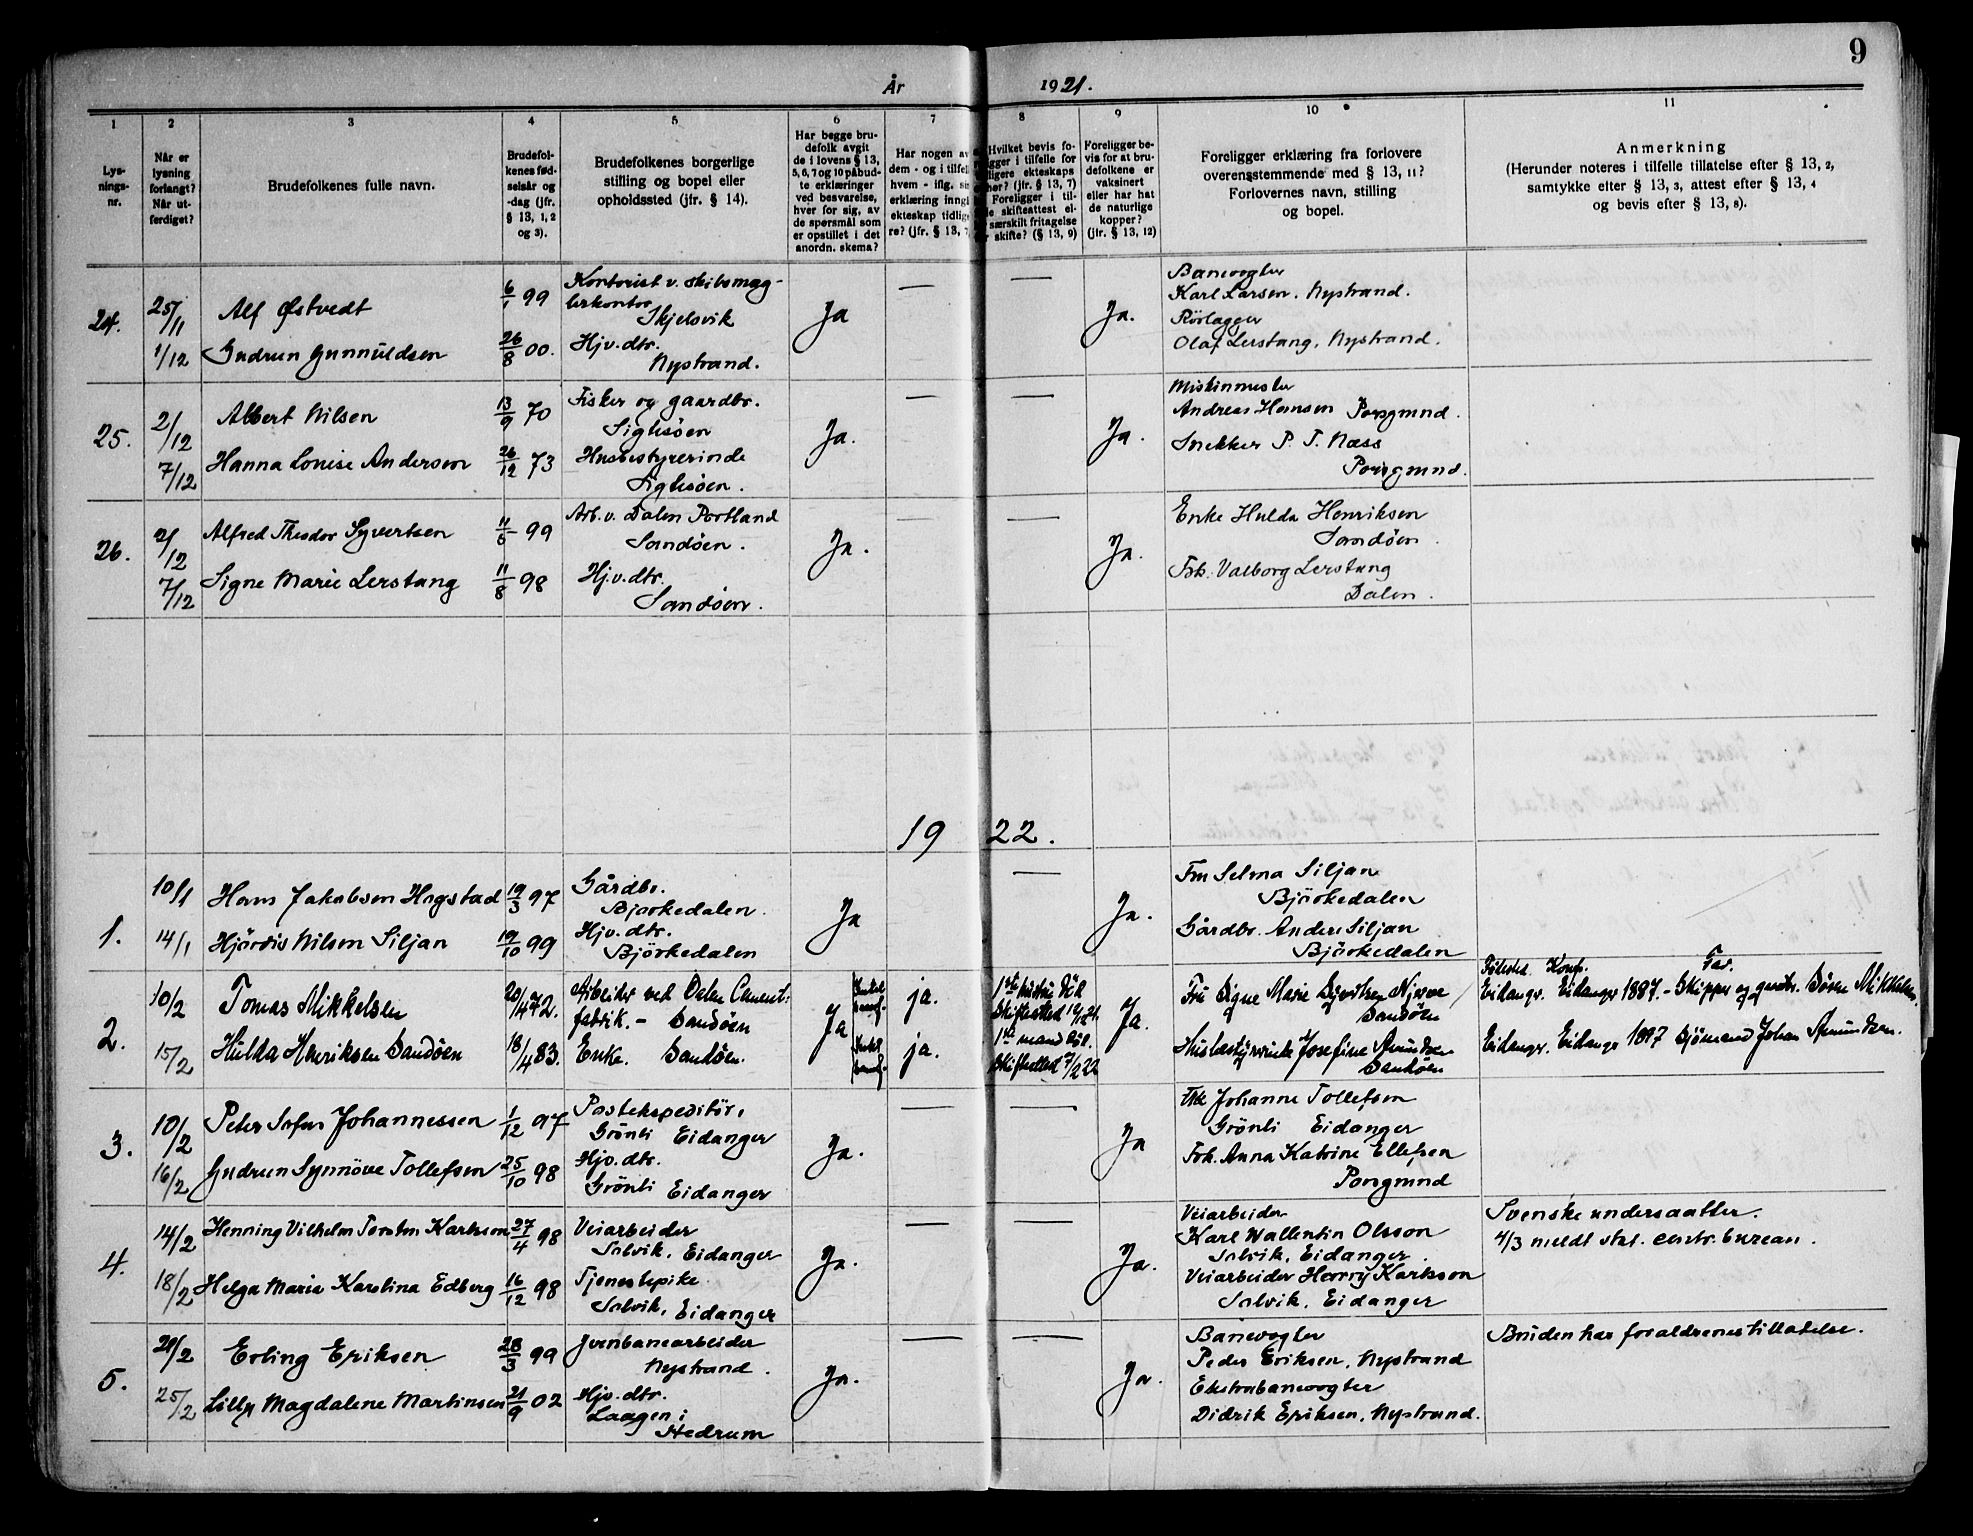 9
År 1921.
1 2 3 4 5 6 7 8 9 10 11
Lysnings-nr.
Når er lysning forlangt? Når utferdiget?
Brudefolkenes fulle navn.
Brudefolkenes fødselsår og -dag (jfr. § 13, 1, 2 og 3).
Brudefolkenes borgerlige stilling og bopel eller opholdssted (jfr. § 14).
Har begge brudefolk avgit de i lovens § 13, 5, 6, 7 og 10 påbudte erklæringer ved besvarelse, hver for sig, av de spørsmål som er opstillet i det anordn. skema?
Har nogen av dem - og i tilfel hvem - iflg. si erklæring inngå ekteskap tidligere? (jfr. § 13, 7
Hvilket bevis foligger i tilfelle for ligere ekteskaps her? (jfr. § 13, 7) Foreligger i tilde skifteattest elsærskilt fritagelse skifte? (§ 13, 9)
Foreligger bevis for at brudefolkene er vaksinert eller har hat de naturlige kopper? (jfr. § 13, 12)
Foreligger erklæring fra forlovere overensstemmende med § 13, 11? Forlovernes navn, stilling og bopel.
Anmerkning (Herunder noteres i tilfelle tillatelse efter § 13, 2, samtykke efter § 13, 3, attest efter § 13, 4 og bevis efter § 13, 8).
24.
25/11 Alf Østvedt 6/1 99 Kontorist v. skibsmæglerkontor Skjelsvik
Ja — — Ja.
Banevogter
Karl Larsen, Nystrand.
1/12 Gudrun Gunnuldsen 26/8 00. Hjv. dtr. Nystrand.
Rörlægger
Olaf Lerstang, Nystrand.
25.
2/12 Albert Nilsen 13/9 70 Fisker og gaardbr. Siglesöen
Ja. — — Ja.
Andreas Hansen Porsgrund.
7/12 Hanna Louise Andersen 26/12 73 Husbestyrerinde Siglesöen.
Snekker P. T. Næss
Porsgrund.
26.
2/12 Alfred Theodor Syvertsen 11/6 99 Arb. v. Dalen Portland Sandöen.
Ja. — — Ja.
Enke Hulda Henriksen
Sandöen
7/12 Signe Marie Lerstang 11/8 98 Hjv. dtr. Sandöen.
Frk. Valborg Lerstang
Dalen.
1922.
1.
10/1 Hans Jakobsen Hagstad 19/3 97 Gårdbr. Bjørkedalen.
Ja — Ja.
Fru Selma Siljan
Björkedalen
14/1 Hjördis Nilsen Siljan 19/10 99 Hjv. dtr. Björkedalen
Gårdbr. Anders Siljan
Björkedalen
2.
10/2 Tomas Mikkelsen 20/4 72. Arbeider ved Dalen Cementfabrik. - Sandöen
Ja ja. 1ste hustru död Skifteatted 19/12 21. Ja.
Fru Signe Marie Syvertsen Njerve
Sandöen
Födested Konf. Far.
Eidanger. Eidanger 1887. - Skipper og gardbr. Sören Mikkelsen.
15/2 Hulda Henriksen Sandöen 18/4 83. Enke. Sandöen.
ja. 1ste mand död. Skifteatted 7/2 22
Husbestyrerinde Josefine Amundsen
Sandöen
Eidanger. Eidanger 1897 Sjömand Johan Amundsen.
3.
10/2 Peter Sofus Johannessen 1/12 97 Postekspeditör. Grönli Eidanger
Ja. — — Ja
Johanne Tollefsen
Grönli Eidanger
16/2 Gudrun Synnöve Tollefsen 25/10 98 Hjv. dtr. Grönli Eidanger
Frk. Anna Katrine Ellefsen
Porsgrund
4.
14/2 Henning Vilhelm Torsten Karlsson 27/4 98 Veiarbeider Solvik, Eidanger
Ja. — — Ja.
Veiarbeider
Karl Wallentin Olsson
Solvik, Eidanger.
Svenske undersaatter.
4/3 meldt stat. centr. bureau.
18/2 Helga Maria Karolina Edberg 16/12 98 Tjenestepike Solvik, Eidanger
Veiarbeider Harry Karlsson
Solvik, Eidanger
5.
20/2 Erling Eriksen 28/3 99 Jernbanearbeider Nystrand.
Ja. — — Ja.
Banevogter
Peder Eriksen, Nystrand
Bruden har foraldrenes tillatelse.
25/2 Lilly Magdalene Martinsen 21/9 02 Hjv. dtr. Laagen i Hedrum
Ekstrabanevogter
Didrik Eriksen, Nystrand.